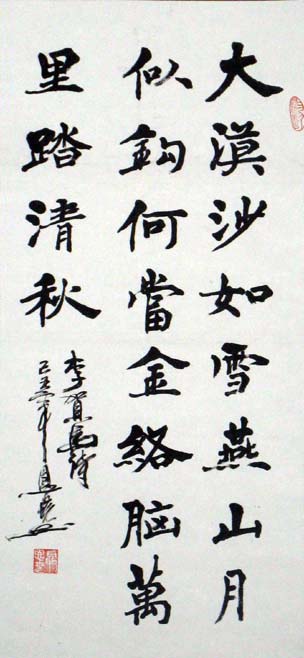 大漠沙如雪燕山月
似鈎何當金絡脑萬
里踏清秋
李賀馬詩
己丑年